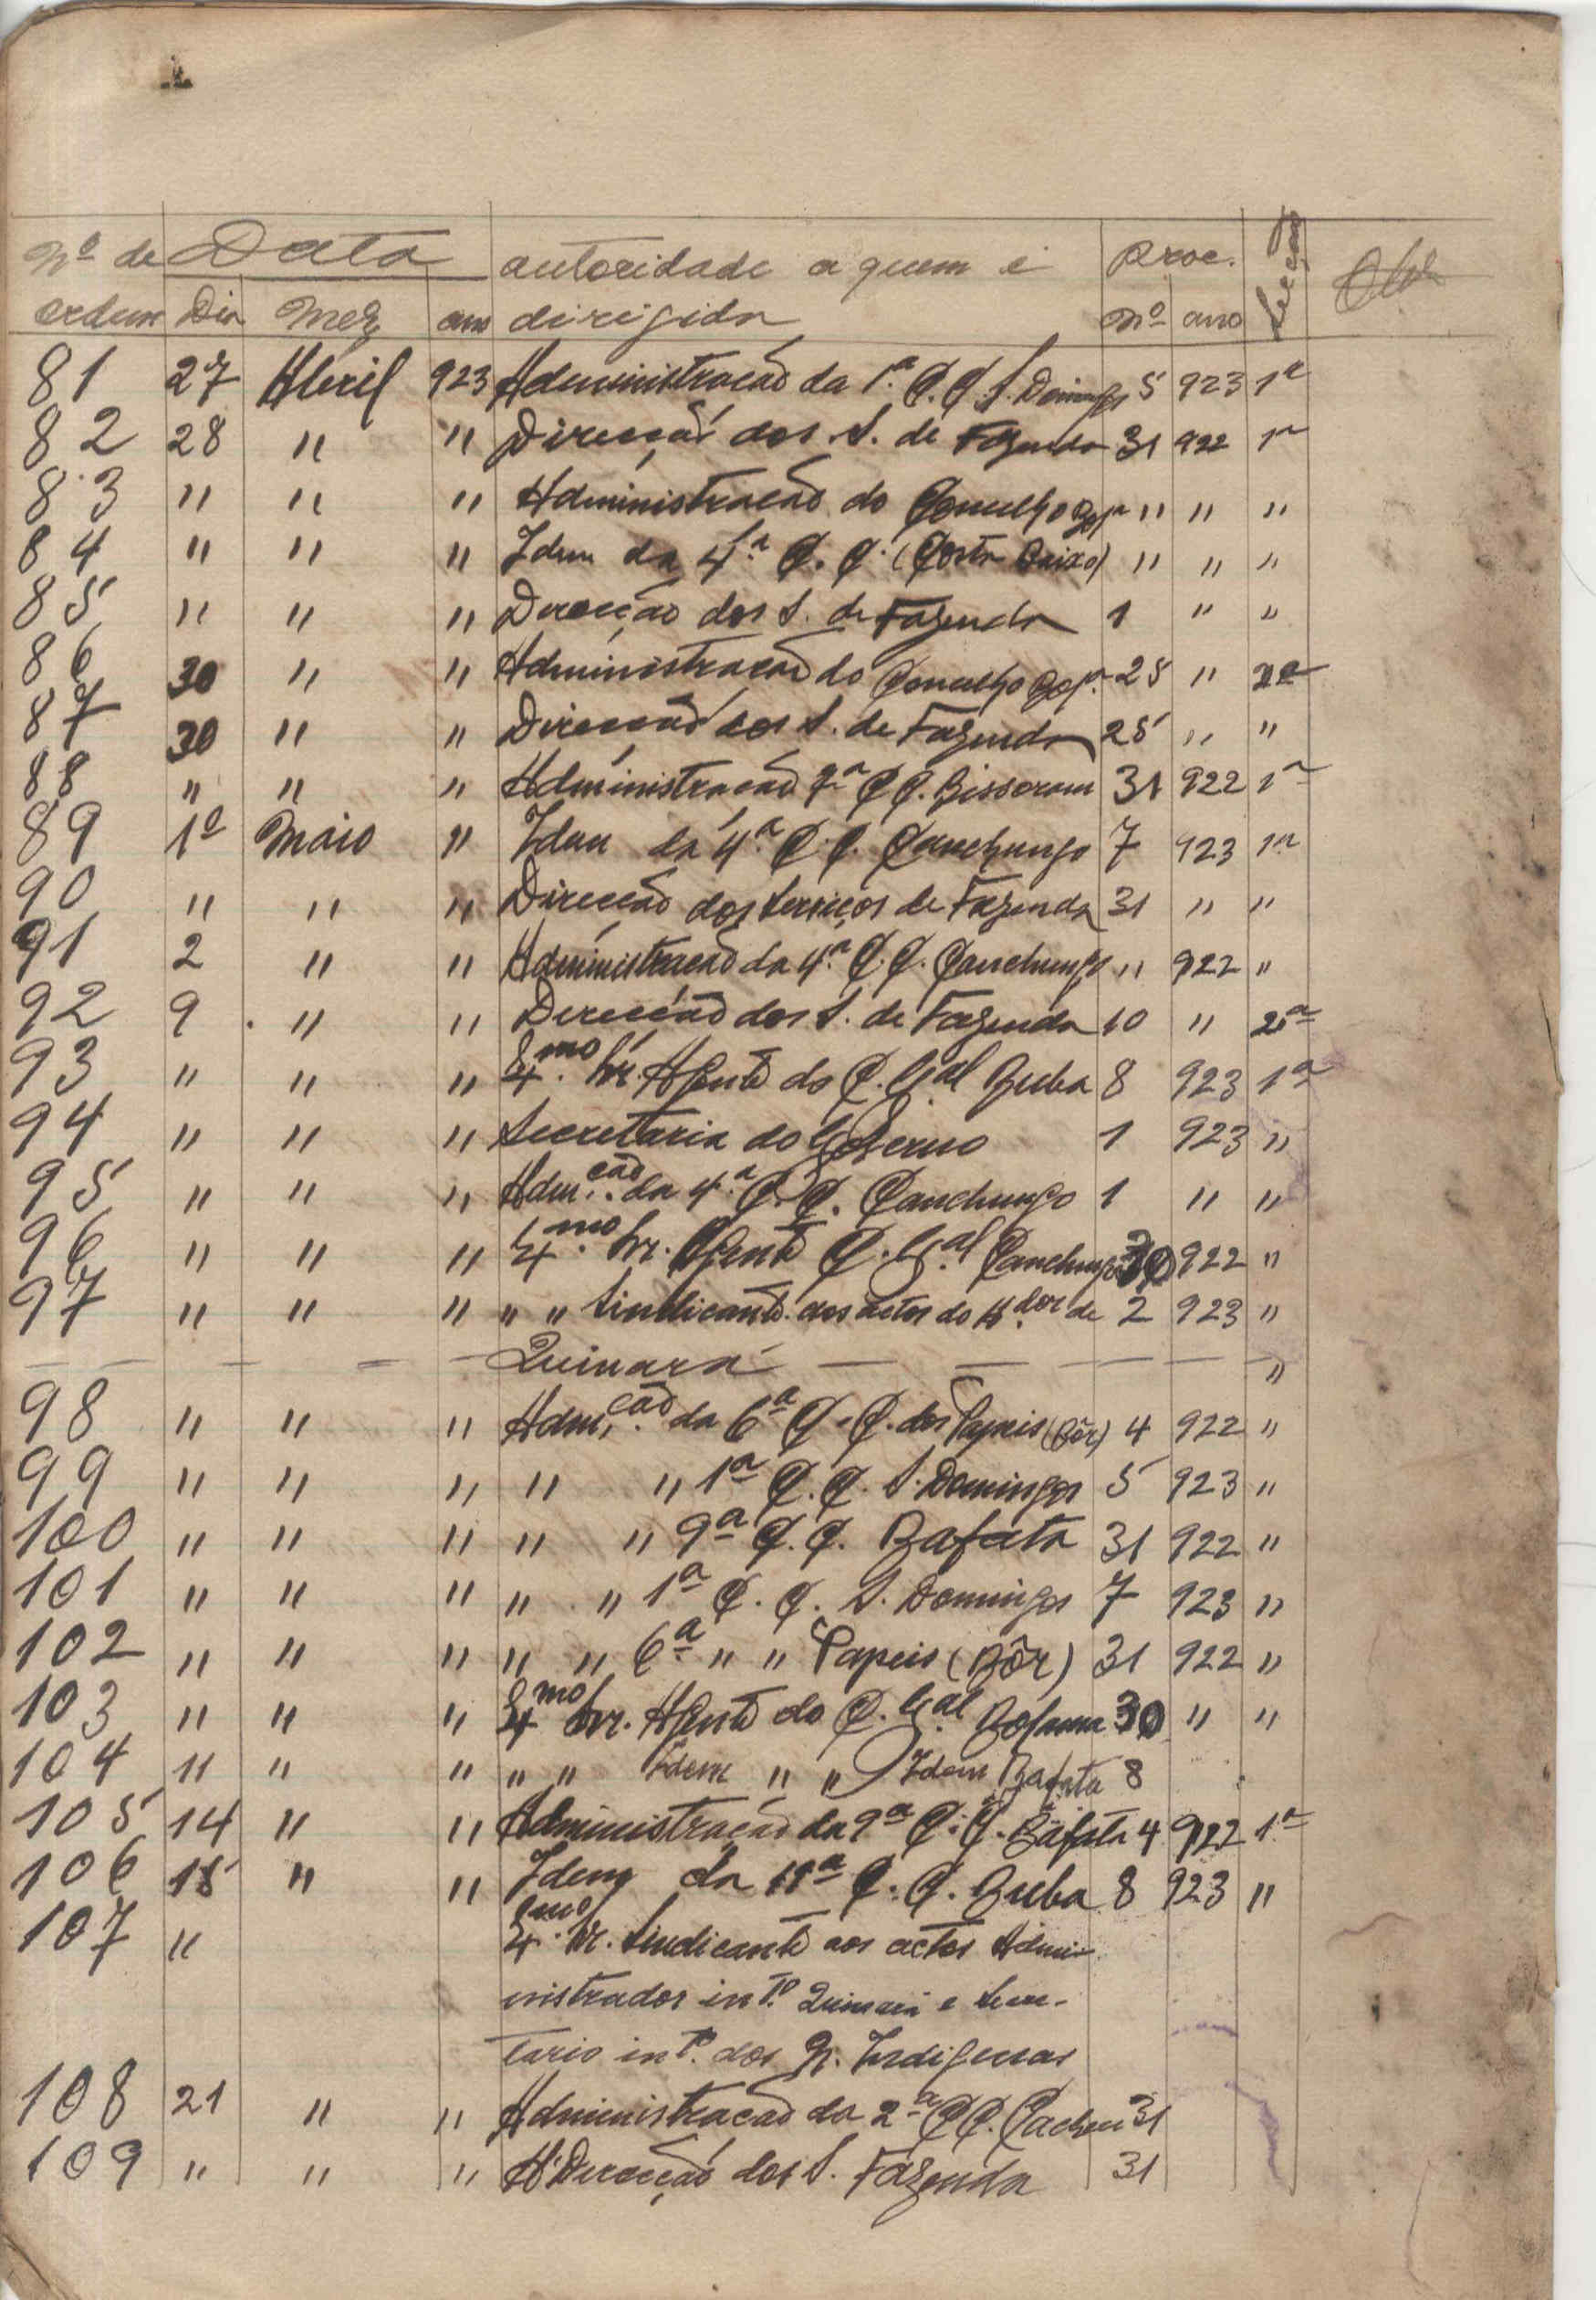 Nº de Data autoridade a quem é Proc. Secção Obs
ordem Dia Mez ano dirigida Nº ano
81 27 Abril 923 Administracão da 1.ª C. C. S. Domingos 5 923 1ª
82 28 " " Direcção dos S. de Fazenda 31 922 1ª
83 " " " Administracão do Concelho Bol.ª " " "
84 " " " Idem da 4.ª C. C. (Costa Baixo) " " "
85 " " " Direcção dos S. de Fazenda 1 " "
86 30 " " Administracão do Concelho Bol.ª 25 " 2ª
87 30 " " Direccão dos S. de Fazenda 25 " "
88 " " " Administracão 7ª C C. Bissoram 31 922 1ª
89 1º Maio " Idem da 4.ª C. C. Canchungo 7 923 1ª
90 " " " Direcção dos Serviços de Fazenda 31 " "
91 2 " " Administracão da 4.ª C. C. Canchungo " 922 "
92 9 " " Direccão dos S. de Fazenda 10 " 2ª
93 " " " Ex.mo Sr. Agente do C. G.al Buba 8 923 1ª
94 " " " Secretaria do Governo 1 923 "
95 " " " Adm.cão da 4.ª C. C. Canchungo 1 " "
96 " " " Ex.mo Sr. Agente C. G.al Canchungo 30 922 "
97 " " " " " Sindicante dos actos do A.dor de 2 923 "
— — — — — Quinara — — — — "
98 " " " Adm.cão da 6ª C. C. dos Papeis (Bôr) 4 922 "
99 " " " " " 1ª C. C. S. Domingos 5 923 "
100 " " " " " 9ª C. C. Bafata 31 922 "
101 " " " " " 1ª C. C. S. Domingos 7 923 "
102 " " " " " 6ª " " Papeis (Bôr) 31 922 "
103 " " " Ex.mo Sr. Agente do C. G.al Bolama 30 " "
104 " " " " " Idem " " Idem Bafata 8
105 14 " " Administração da 9ª C. C. Bafata 4 922 1ª
106 15 " " Idem da 11ª C. C. Buba 8 923 "
107 " Ex.mo Sr. Sindicante aos actos Admi-
nistrador int.º Quinara e Secre-
tario int.º dos N. Indigenas
108 21 " " Administracão da 2ª C C. Cacheu 31
109 " " " A' Direcção dos S. Fazenda 31